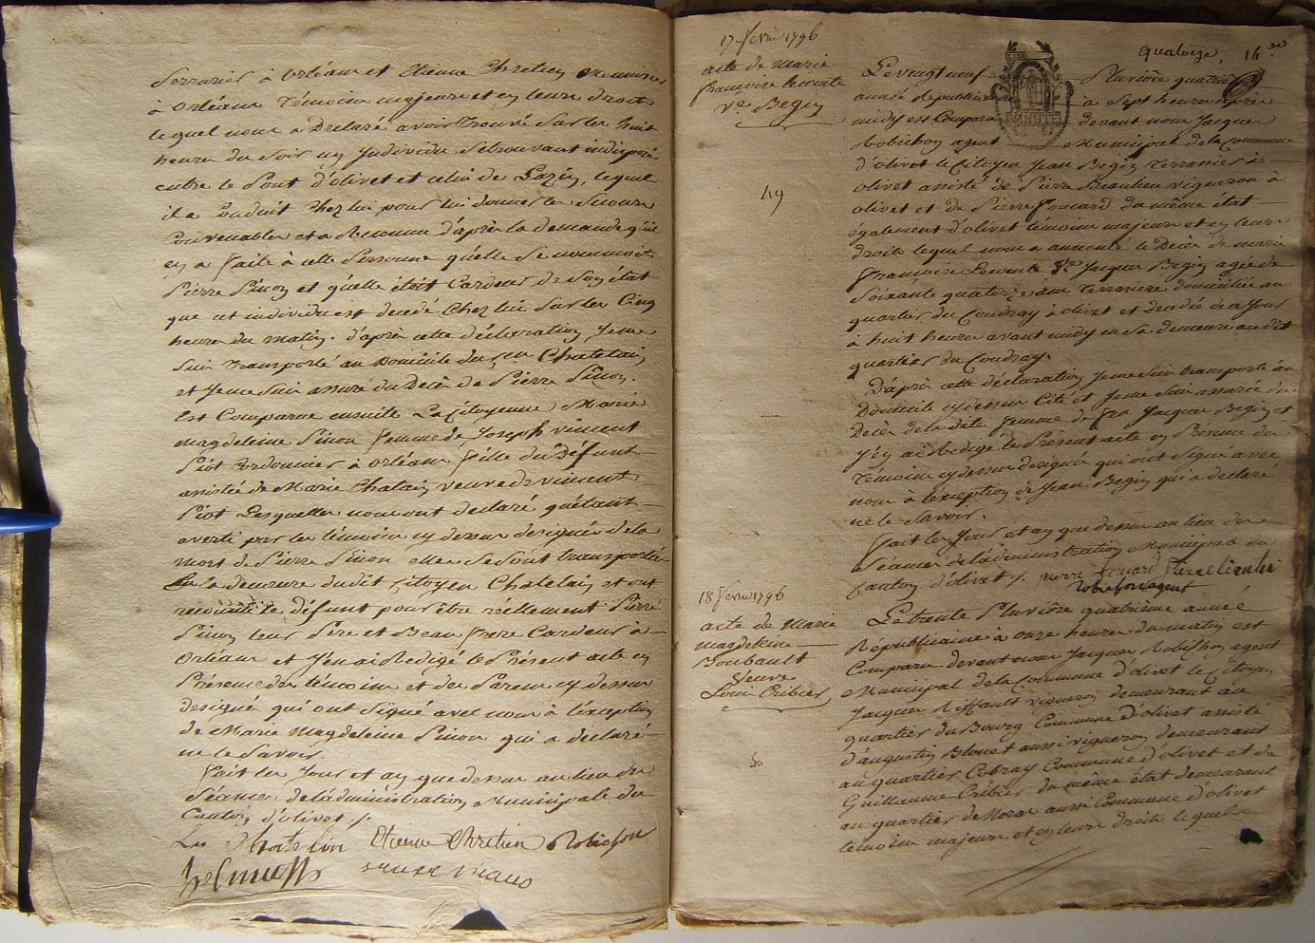 Serrurier à Orléans et Etienne Chretien
à Orléans témoins majeurs et en leurs droits
lequel nous a Declaré avoir trouvé sur les huit
heures du soir un Individu se trouvant indisposé
entre le Pont d'olivet et celui de Lazin, lequel
il a Conduit chez lui pour lui donner les Secours
Convenables et a Reconnu d'après la demande qu'il
en a faite à cette Personne qu'elle se nommoit
Pierre Pinon et qu'elle étoit Cardeur de son état
que cet individu est decedé chez lui sur les Cinq
heures du matin. d'après cette déclaration, Je me
suis transporté au Domicile du Cen Chatelain
et Je me suis assuré du Decès de Pierre Pinon.
Est Comparue ensuite La Citoyenne Marie
magdeleine Pinon femme de Joseph vincent
Piot Cordonnier à Orléans fille du Défunt
assistée de Marie Chalain, veuve de vincent
Piot Lesquelles nous ont declaré, qu'étant
averti par les témoins cy dessus designés de la
mort de Pierre Pinon elles se sont transportées
En la demeure du dit Citoyen Chatelain et ont
reconnu le défunt pour être reellement Pierre
Pinon leur Père et Beau frere Cardeur à
Orléans et J'en ai Redigé le Présent acte en
Présence des témoins et des Parens cy dessus
designés qui ont Signé avec nous à l'exception
de Marie Magdeleine Pinon qui a declaré
ne le Savoir.
Fait les Jour et an que dessus au lieu des
Séances de l'administration Municipale du
Canton d'olivet /.
Chatelin Etienne Chretien Robichon
17 fevrier 1796
acte de marie
françoise lecomte
ve. Begin
49
quatorze, 14
Le vingt neuf Pluviôse quatre
année républicaine à Sept heures après
midy est Comparu devant nous Jacques
Robichon agent Municipal de la Commune
d'olivet le Citoyen Jean Begin terrassier à
olivet assisté de Pierre Beaulieu vigneron à
olivet et de Pierre Foucard du même état
également d'olivet témoins majeurs et en leurs
droits lequel nous a annoncé le Decès de marie
françoise Lecomte Ve Jacques Begin agée de
Soixante quatorze ans terrassiere domiciliée au
quartier du Coudray à olivet et decedée ce Jour
à huit heures avant midy en sa demeure au dit
quartier du Coudray.
D'après cette déclaration Je me suis transporté au
Domicile cy dessus Cité et Je me suis assuré du
Decès de la dite femme de feu Jacques Begin et
J'en ai Redigé le Présent acte en Présence des
témoins cy dessus designés qui ont Signé avec
nous à l'exception de Jean Begin qui a declaré
ne le Savoir.
Fait les Jour et an que dessus au lieu des
Séances de l'administration Municipale du
Canton d'olivet /. pierre foucard
Robichon agent
18 fevrier 1796
acte de Marie
magdeleine
Boubault
Veuve
Louis Cribier
50
Le trente Pluviôse quatrième année
Républicaine à onze heures du matin est
Comparu devant nous Jacques Robichon agent
Municipal de la Commune d'olivet le Citoyen
Jacques Riffault vigneron demeurant au
quartier du Bourg Commune d'olivet assisté
d'augustin Blouet aussi vigneron demeurant
au quartier Commune d'olivet et de
Guillaume Cribier du même état demeurant
au quartier de aussi Commune d'olivet
témoins majeurs et en leurs droits lequel